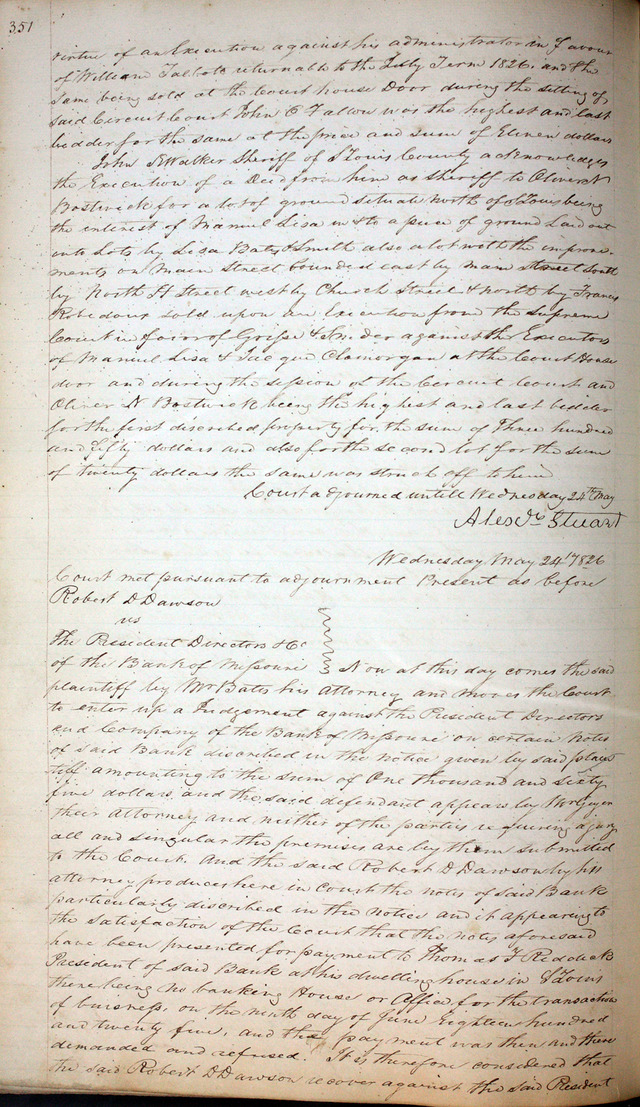 351
virtue of an Execution against his administrator in favour
of William Talbots returnable to the July Term 1826. and the
same being sold at the Court house Door during the sitting of
said Circuit Court John O Fallon was the highest and last
bidder for the same at the price and sum of Eleven dollars
John K Walker Sheriff of St Louis County acknowledges
the Execution of a Deed from him as sheriff to Oliver N
Bostwick for a lot of ground situate North of St Louis being
the interest of Manuel Lisa in & to a piece of ground Laid out
into Lots by Lisa Bates & Smith also a lot with the improve-
ments on Main Street bounded east by main Street South
by North H Street west by Church Street & north by Francis
Robedoux sold upon an Execution from the Supreme
Court in favor of & Snider against the Executors
of Manuel Lisa & Clamorgan at the Court House
door and during the session of the Circuit Court and
Oliver N Bostwick being the highest and last bidder
for the first discribed property for the sum of Three hundred
and fifty dollars and also for the second lot for the sum
of twenty dollars the same was struck off to him
Court adjourned untill Wednesday 24th May
Alexdr Stuart
Wednesday May 24th 1826
Court met pursuant to adjournment Present as before
Robert D Dawson
vs
The President Directors &C
of the Bank of Missouri Now at this day comes the said
plaintiff by Mr Bates his Attorney and moves the Court
to enter up a Judgement against the President Directors
and Company of the Bank of Missouri on certain Notes
of said Bank discribed in the notice given by said plain
tiff amounting to the sum of One thousand and sixty
five dollars and the said defendant appears by Mr Geyer
their Attorney and neither of the parties requiring a jury
all and singular the premises are by them submitted
to the Court. And the said Robert D Dawson by his
attorney produces here in Court the notes of said Bank
particularly discribed in the notice and it appearing to
the satisfaction of the Court that the notes aforesaid
have been presented for payment to Thomas F Reddick
President of said Bank at his dwelling house in St Louis
there being no banking House or Office for the transaction
of buisness, on the ninth day of June Eighteen hundred
and twenty five, and that payment was then and there
demanded and refused. It is, therefore considered that
the said Robert D Dawson recover against the said President